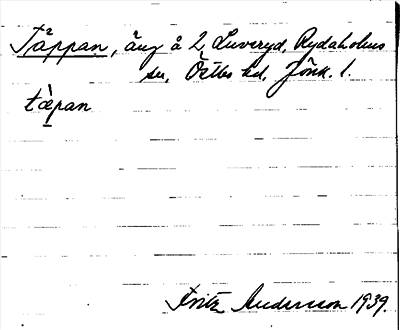 Täppan, äng å 2 Luveryd, Rydaholms
sn, Östbo hd, Jönk. l.
tæ̀pan
Fritz Andersson 1939.